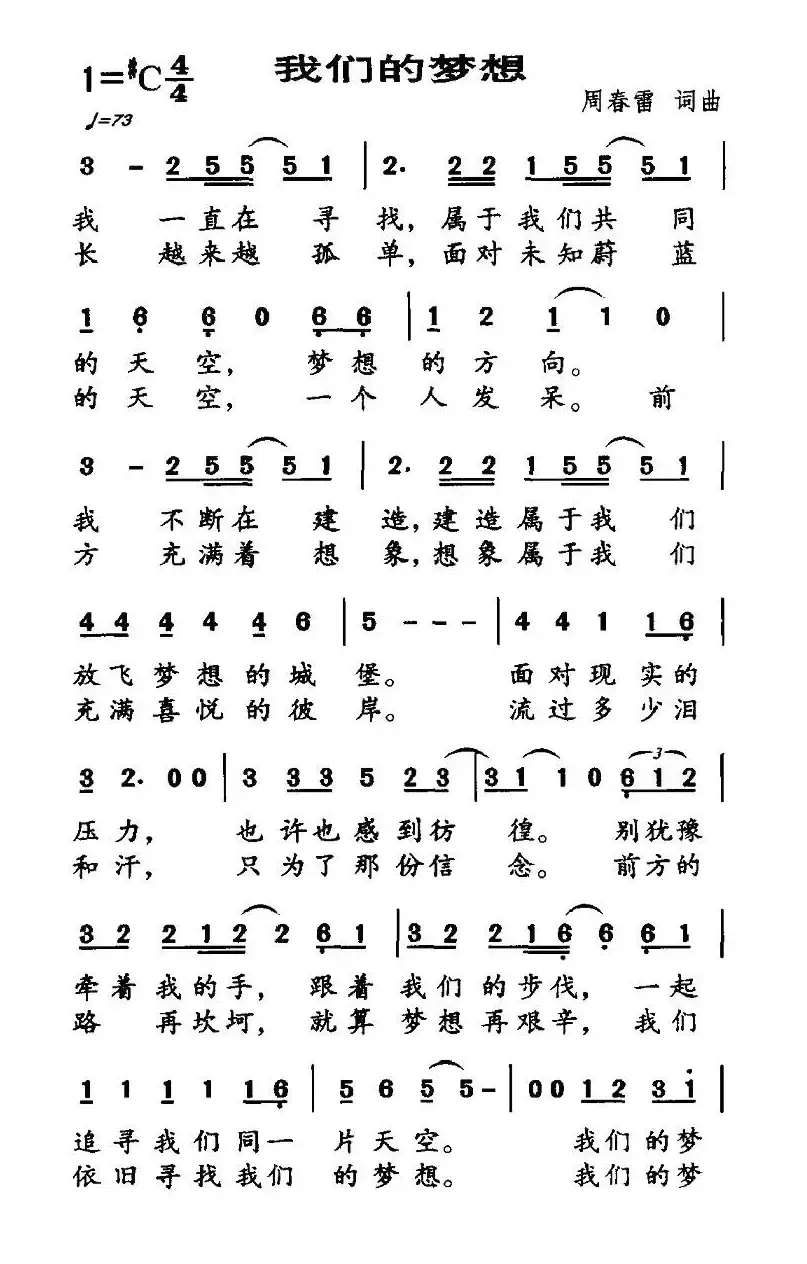 我们的梦想
1=#C 4/4
周春雷 词曲
♩=73
3 - 2 5 5 5 1 | 2. 2 2 1 5 5 5 1 |
我 一直在 寻 找,属于我们共 同
长 越来越 孤 单,面对未知蔚 蓝
1 6 6 0 6 6 | 1 2 1 1 0
的天空, 梦想 的方 向。
的天空, 一个 人发 呆。 前
3 - 2 5 5 5 1 | 2. 2 2 1 5 5 5 1 |
我 不断在 建 造,建造属于我 们
方 充满着 想 象,想象属于我 们
4 4 4 4 4 6 | 5 - - - | 4 4 1 1 6 |
放飞梦想的城 堡。 面对现实的
充满喜悦的彼 岸。 流过多少泪
3 2. 0 0 | 3 3 3 5 2 3 | 3 1 1 0 6 1 2
压力, 也许也感到彷 徨。 别犹豫
和汗, 只为了那份信 念。 前方的
3 2 2 1 2 2 6 1 | 3 2 2 1 6 6 6 1 |
牵着我的手, 跟着 我们的步伐, 一起
路 再坎坷, 就算 梦想再艰辛, 我们
1 1 1 1 1 6 | 5 6 5 5 - | 0 0 1 2 3 1 |
追寻我们同一 片天空。 我们的梦
依旧寻找我们 的梦想。 我们的梦